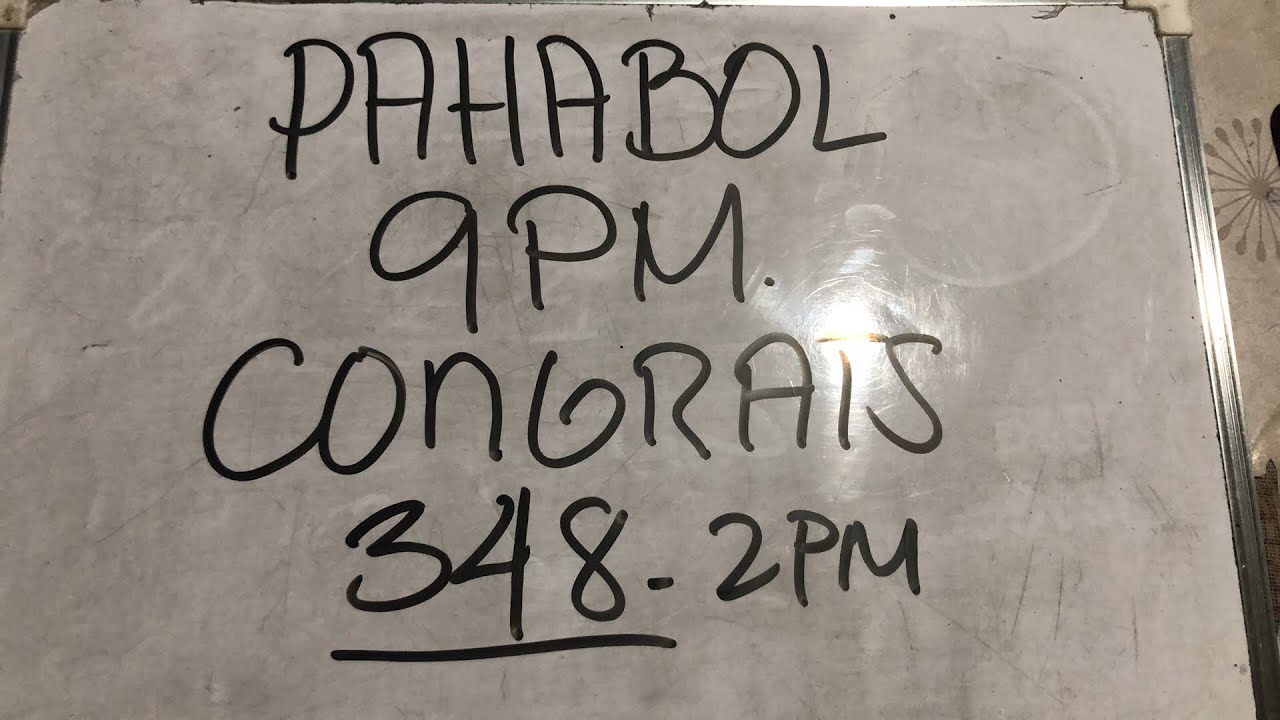 PAHABOL
9PM.
CONGRATS
348-2PM